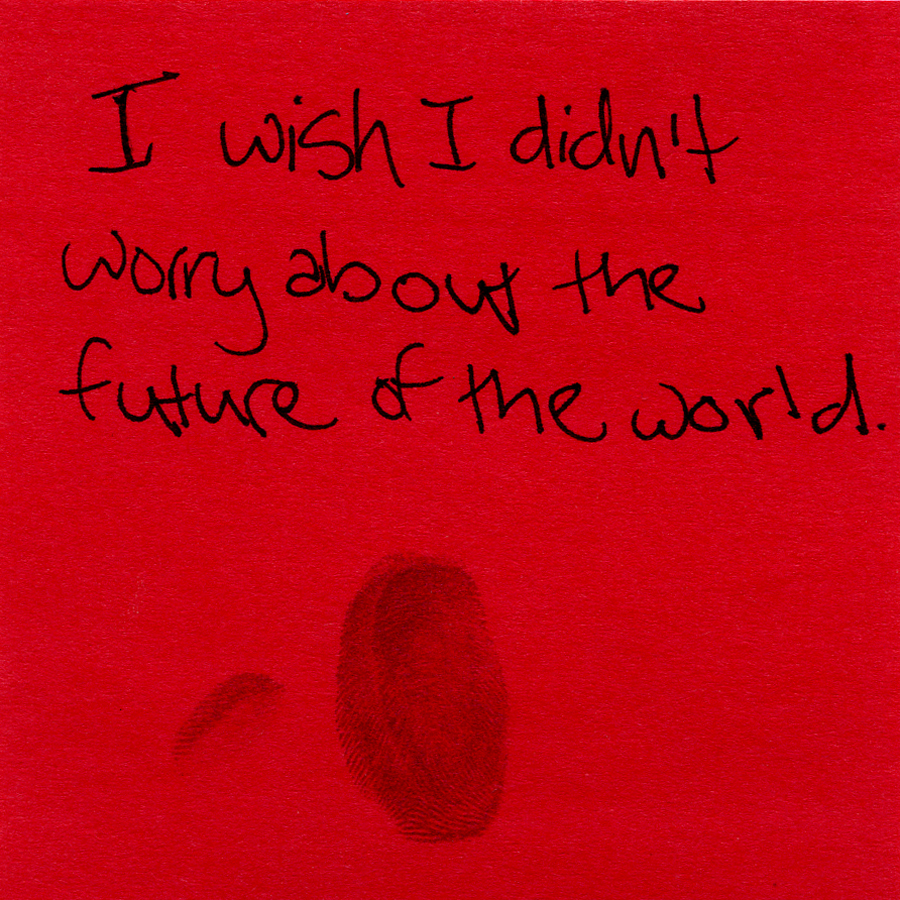 I wish I didn't
worry about the
future of the world.